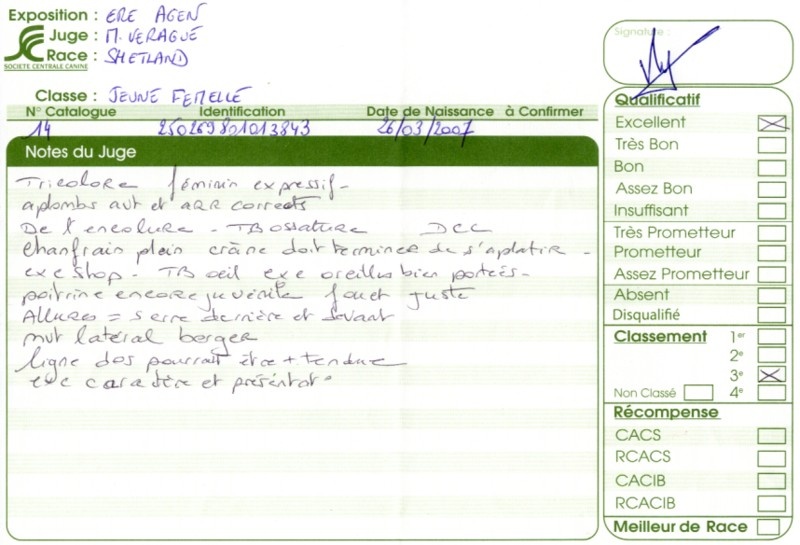 Exposition : ERE AGEN
Juge : M. VERAGUE
Race : SHETLAND
SOCIETE CENTRALE CANINE
Classe : JEUNE FEMELLE
N° Catalogue Identification Date de Naissance à Confirmer
14 250269801013843 26/03/2007
Notes du Juge
Tricolore féminin expressif -
aplombs avt et ARR corrects
De l'encolure - TB ossature DCC
chanfrain plein crâne doit terminer de s'aplatir -
exc stop - TB œil exc oreilles bien portées -
poitrine encore juvénile fouet juste
Allures = serre derrière et devant
mvt latéral berger
ligne dos pourrait être + tendue
exc caractère et présentat°
Signature :
Qualificatif
Excellent
Très Bon
Bon
Assez Bon
Insuffisant
Très Prometteur
Prometteur
Assez Prometteur
Absent
Disqualifié
Classement 1er
2e
3e
Non Classé 4e
Récompense
CACS
RCACS
CACIB
RCACIB
Meilleur de Race